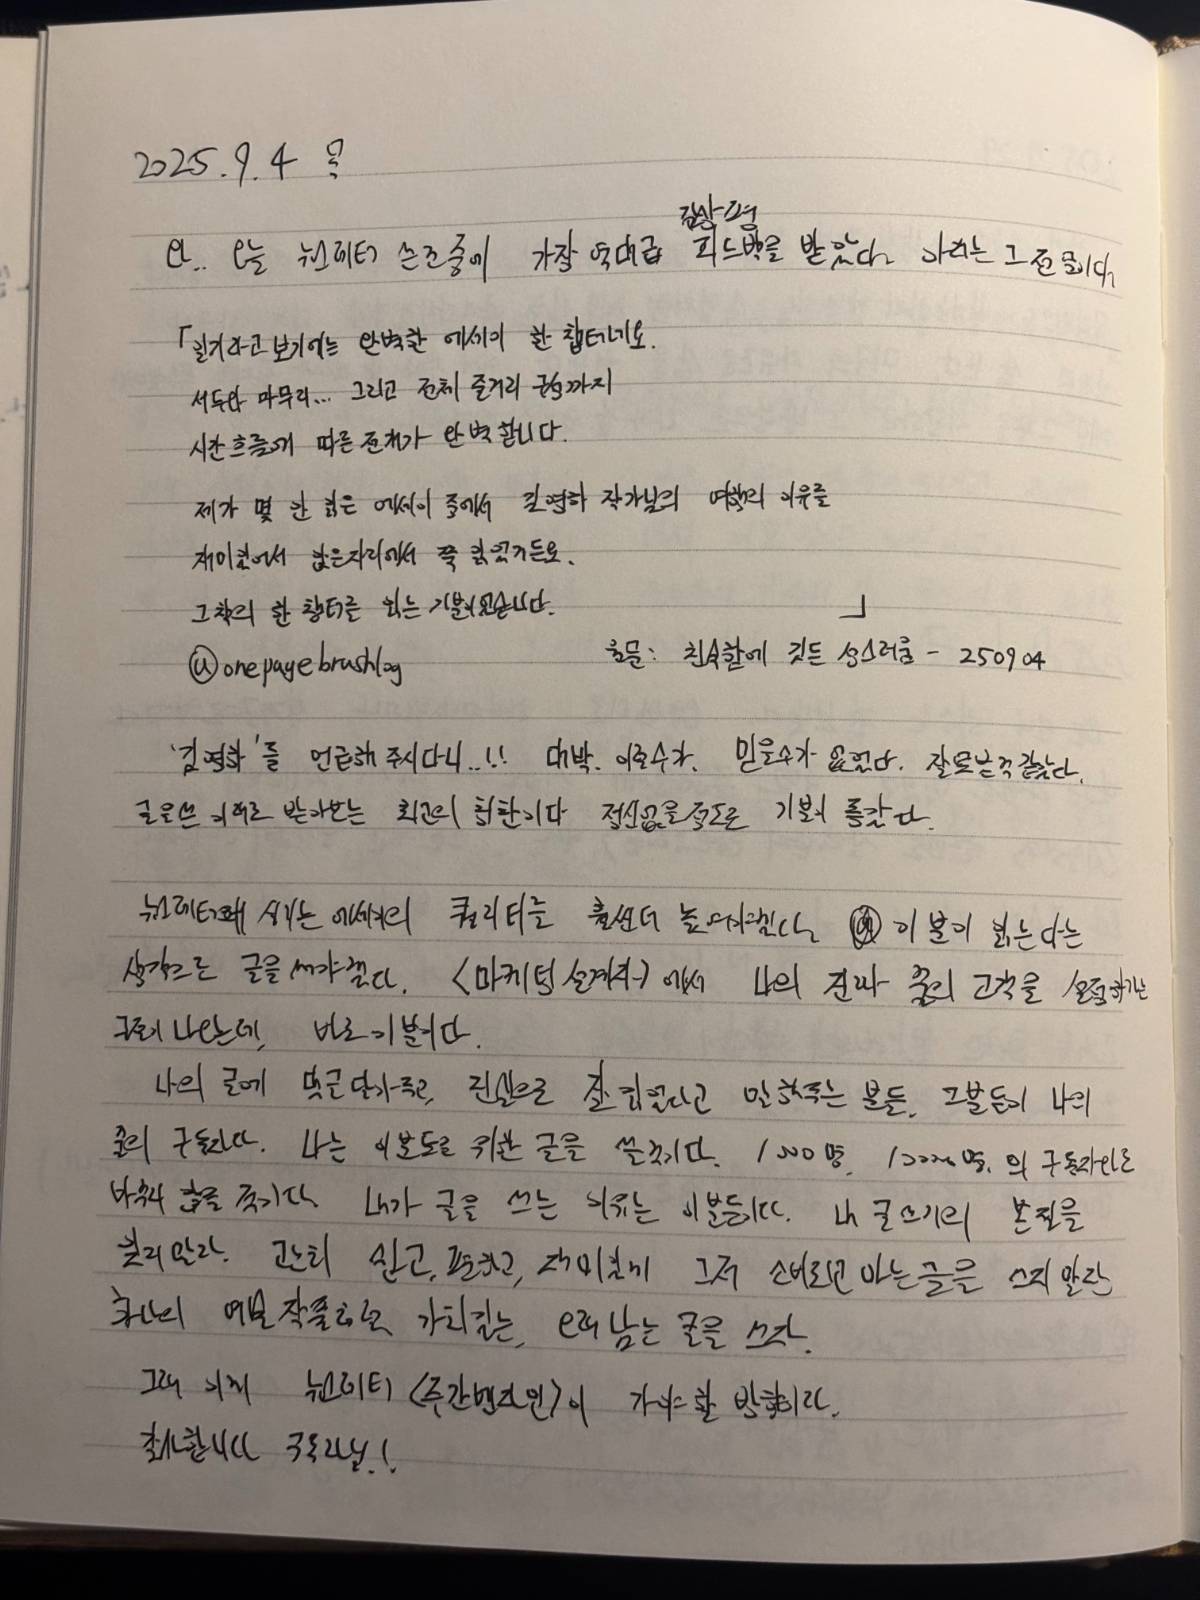 2025.9.4 목
와.. 오늘 뉴스레터 손꼽 중에 가장 역대급 피드백을 받았다. 아래는 그 전문이다.
감상평
「일기라고 보기에는 완벽한 에세이 한 챕터네요.
서두와 마무리... 그리고 전체 줄거리 구성까지
시간흐름에 따른 전개가 완벽합니다.
제가 몇 안 읽은 에세이 중에서 김영하 작가님의 여행의 이유를
재미있어서 앉은자리에서 쭉 읽었거든요.
그 책의 한 챕터를 읽는 기분이었습니다. 」
onepagebrushlog 원문: 친숙함에 깃든 성스러움 - 250904
'김영하'를 언급해 주시다니..!! 대박. 이럴수가. 믿을수가 없었다. 잘못본 것 같았다.
글을쓴 이래로 받아보는 최고의 칭찬이다 정신없을 정도로 기분이 좋았다.
뉴스레터에 싣는 에세이의 퀄리티를 훨씬 더 높여야겠다. 이 분이 읽는다는
생각으로 글을 써야겠다. <마케팅 설계자>에서 나의 진짜 꿈의 고객을 설정하라는
구절이 나오는데, 바로 이분이다.
나의 글에 댓글 달아주고, 진심으로 잘 읽었다고 말해주는 분들, 그분들이 나의
꿈의 구독자다. 나는 이분들을 위한 글을 쓸 것이다. 1000명, 10000명의 구독자만을
내가 글을 쓰는 이유는 이분들이다. 내 글쓰기의 본질을
잃지 말라. 그저 소비되고 마는 글을 쓰지 말라
하나의 예술 작품으로 가치있는, 오래 남는 글을 쓰자.
그게 이제 뉴스레터 <주간밴라인>이 가야할 방향이다.
감사합니다 구독자님.!